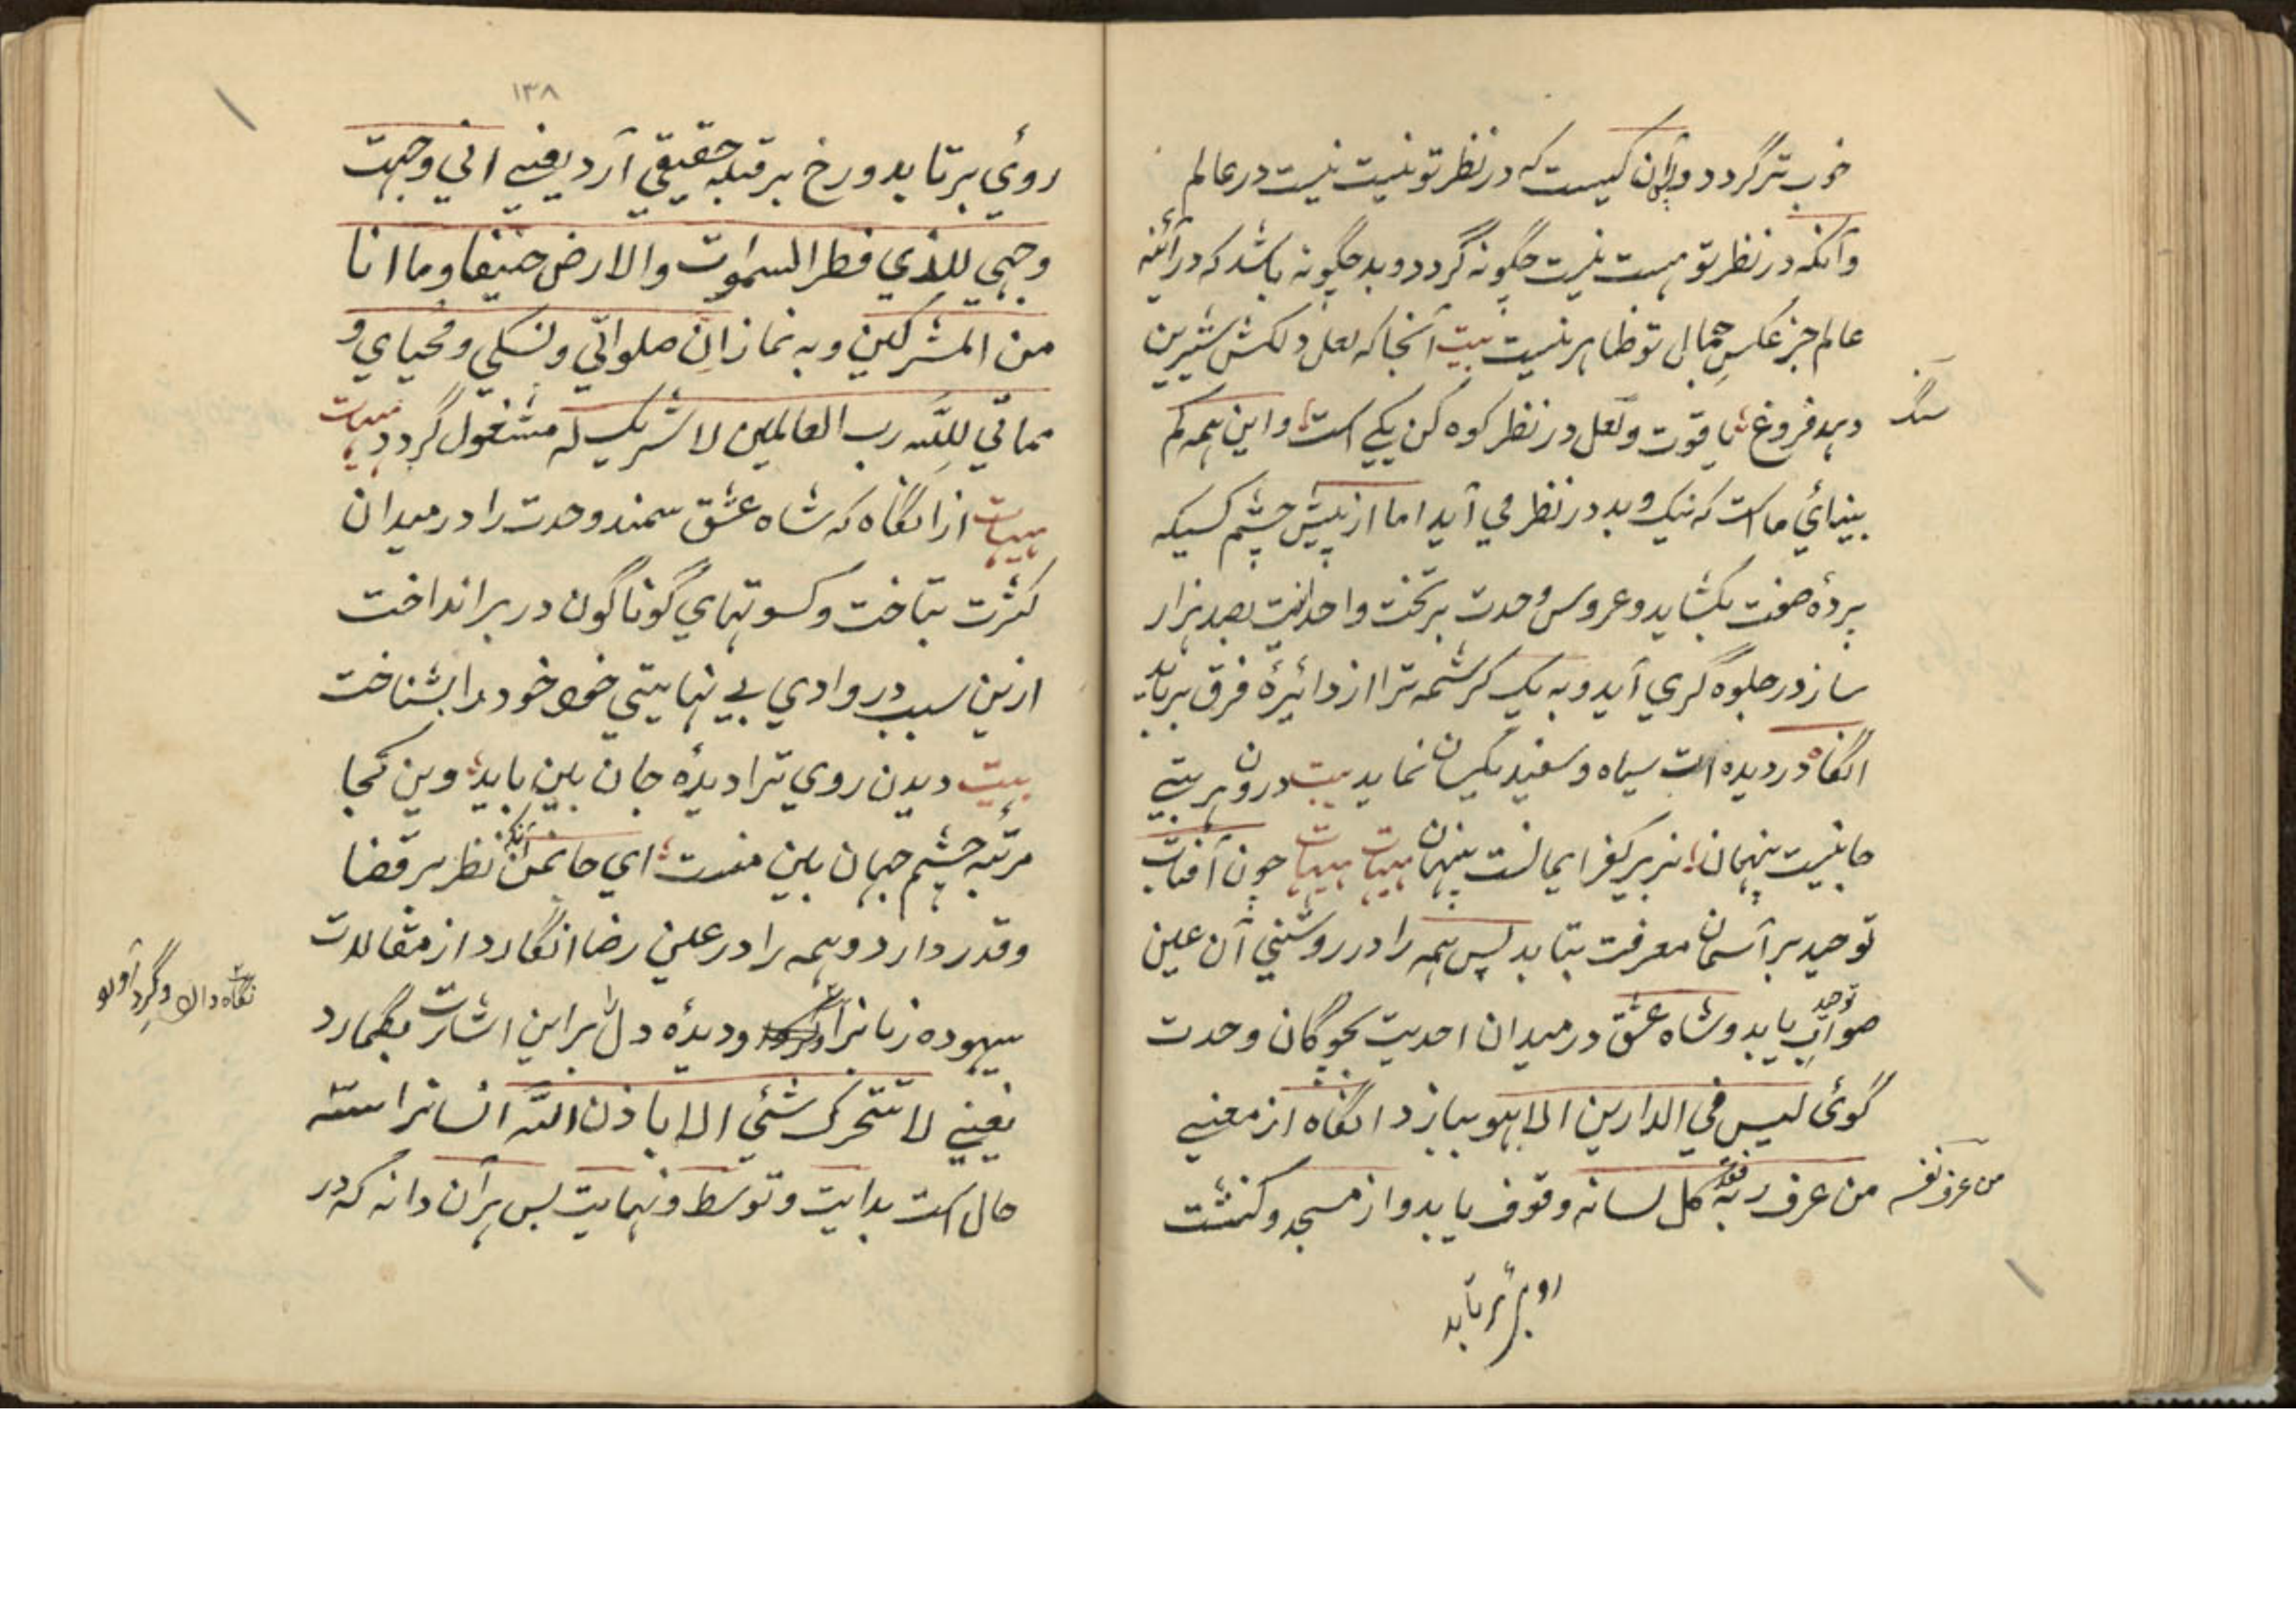 خوب تر گردد و آن کیست که در نظر تو نیست نیست در عالم
وآنکه در نظر تو هست نیست چگونه گردد و بد چگونه باشد که در آئینه
عالم جز عکسِ جمالِ تو ظاهر نیست بیت آنجا که لعل دلکش شیرین
دهد فروغ یاقوت و لعل در نظر کوه کن یکی است و این همه کم
سنگ
بینائی ما است که نیک و بد در نظر می آید اما از پیش چشم کسیکه
پردهٔ صفت بکشاید و عروس وحدت بر تخت واحدانیت بصد هزار
ساز در جلوه گری آید و به یک کرشمه ترا از دائیرهٔ فرق برباید
انگاه در دیده ات سیاه و سفید یکسان نماید بیت درون هر بتی
جانیست پنهان بزیر کفر ایمانست پنهان هیهات هیهات چون آفتاب
توحید بر آسمان معرفت بتابد پس همه را در روشنی آن عین
صواب یابد و شاه عشق در میدان احدیت بچوگان وحدت
توحد
گوئی لیس فی الدارین الا هو ببازد انگاه از معنی
من عرف ربه فقد کل لسانه وقوف یابد و از مسجد و کنشت
من عرف نفسه
روی برتابد
۱۳۸
روئی برتابد و رخ بر قبله حقیقی آرد یعنی انی وجهت
وجهی للذی فطر السموات والارض حنیفا وما انا
من المشرکین و به نماز ان صلواتی ونسکی ومحیای و
مماتی للّه رب العالمین لا شریک له مشغول گردد هیهات
هیهات ازانگاه که شاه عشق سمند وحدت را در میدان
کثرت بتاخت و کسوتهای گوناگون در بر انداخت
ازین سبب در وادی بے نهایتی خود خود را بشناخت
بیت دیدن روی ترا دیدهٔ جان بین باید وین کجا
مرتبه چشم جهان بین منست ای جانمن آنکه نظر بر قضا
وقدر دارد و همه را در عین رضا انگارد از مقالات
بیهوده زبانرا ودیدهٔ دل را براین اشارت بگمارد
نگاه دارد و گرد آورد
یعنی لا تتحرک شئی الا باذن اللّه انسانرا سته
حال است بدایت و توسط و نهایت پس هرآن دانه که در